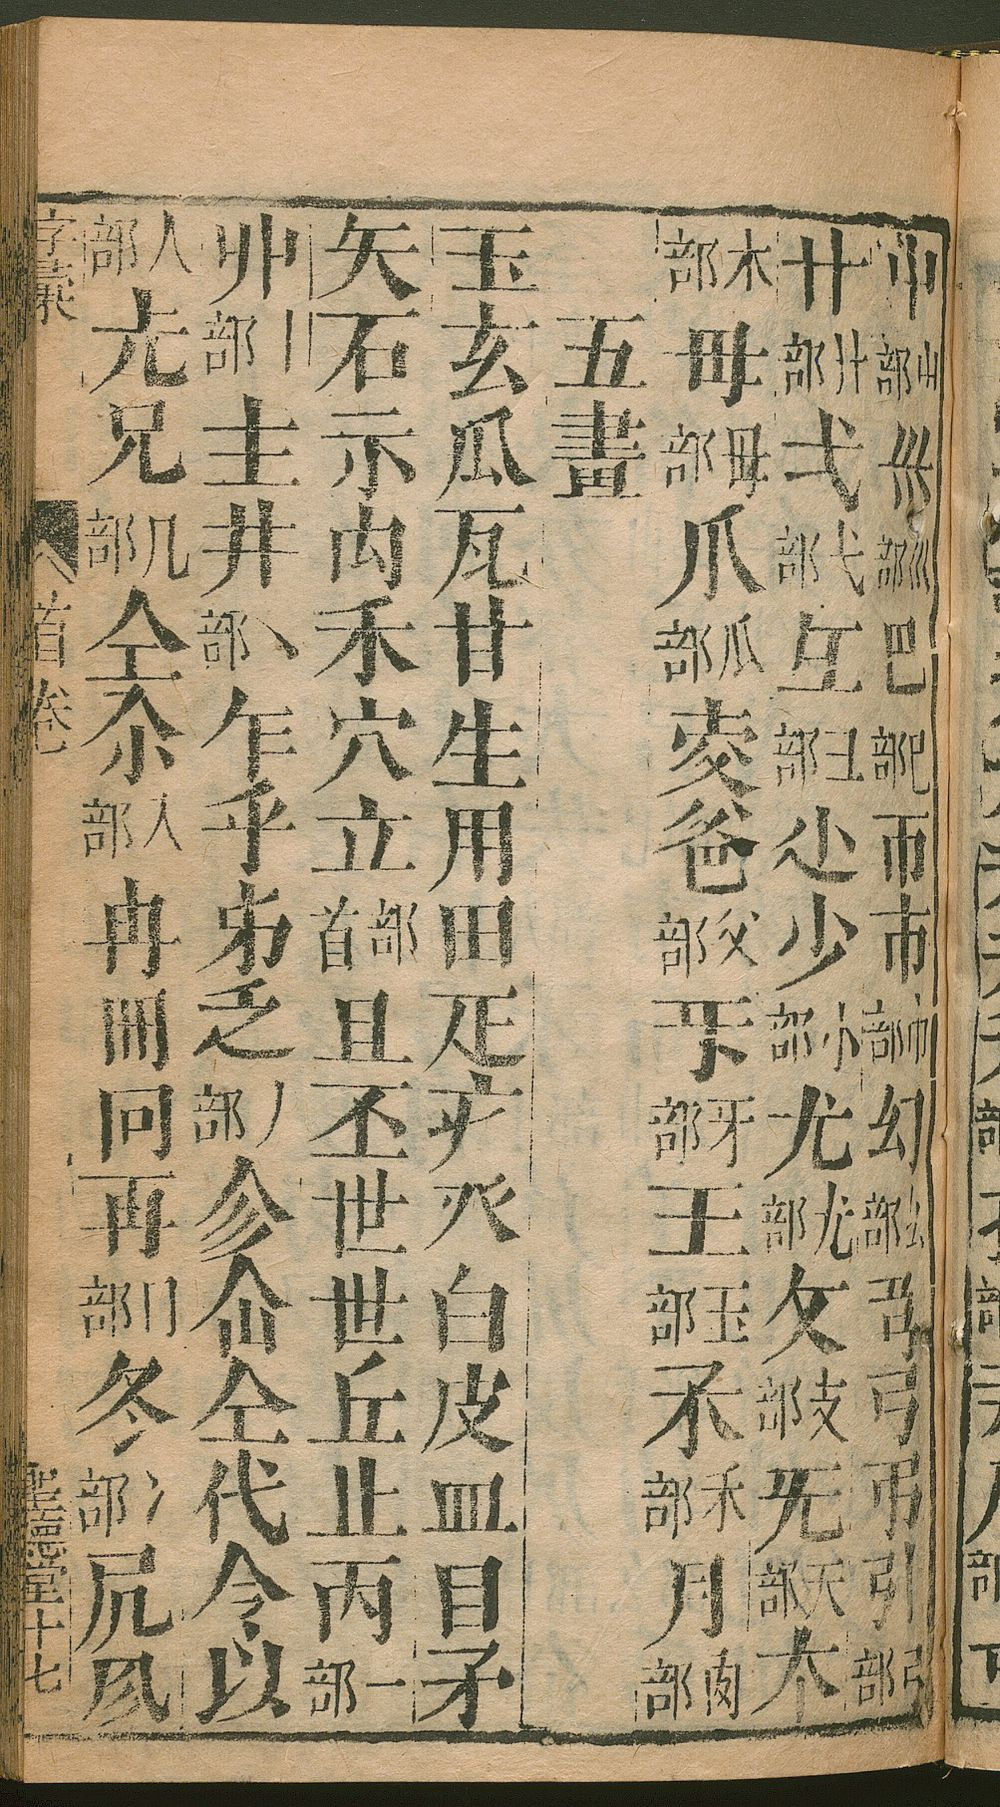 屮山部巛巛部巴己部帀市巾部幻幺部弓弔引弓部
廿廾部弋弋部彑彐部少小部尤尢部攵支部旡无部木
木部毋毋部爪瓜部爻爸父部牙部王玉部禾部月肉部
五畫
玉玄瓜瓦甘生用田疋疒癶白皮皿目矛
矢石示禸禾穴立部首且丕世世丘止丙一部
丱丨部主井丶部乍乎乏丿部仚仝代令以
人部兂兄几部仝人部冉冊冋再冂部冬冫部凥凨
字彙 首卷 聖德堂 十七